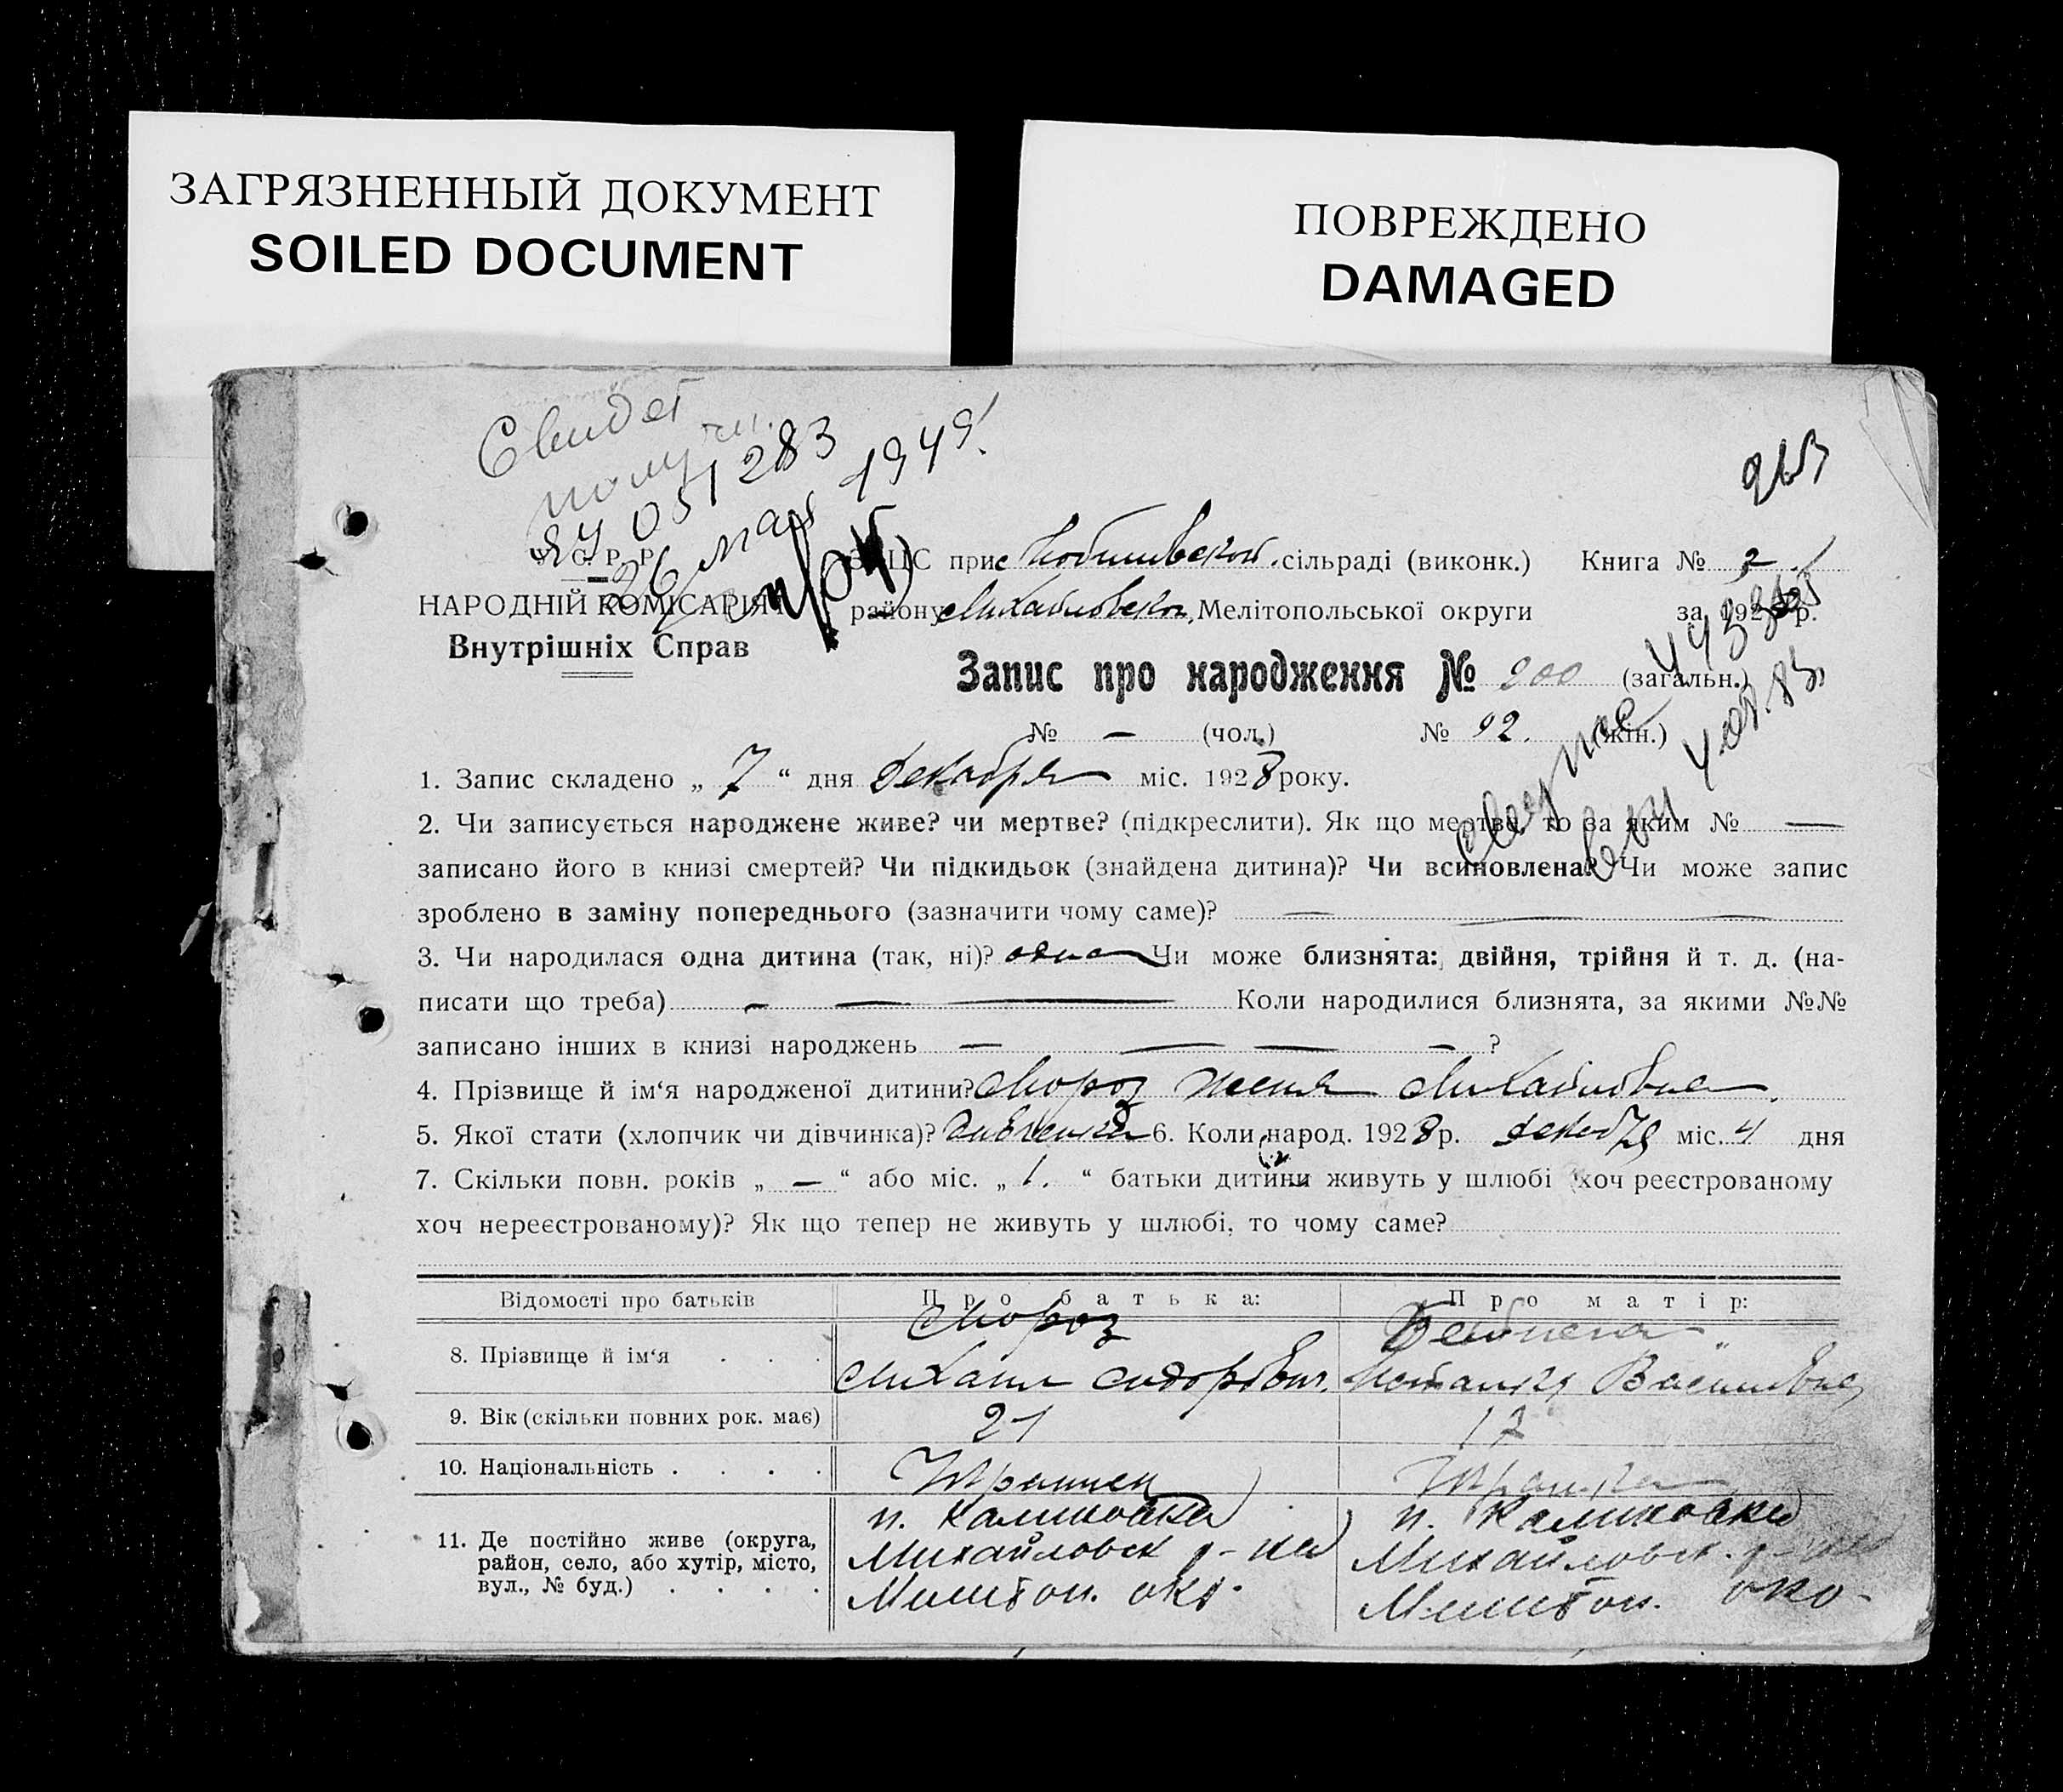 ЗАГРЯЗНЕННЫЙ ДОКУМЕНТ
SOILED DOCUMENT
ПОВРЕЖДЕНО
DAMAGED
Свидет
051283
26 мая 1949
У. С. Р. Р.
НАРОДНІЙ КОМІСАРІЯТ
Внутрішніх Справ
ЗАЦС при сільраді (виконк.) Книга № 2
району Михайловском Мелітопольської округи за 1928 р.
Запис про народження № 200 (загальн.)
№ — (чол.) № 92. (жін.)
1. Запис складено „ 7 “ дня декабря міс. 1928 року.
2. Чи записується народжене живе? чи мертве? (підкреслити). Як що мертве, то за яким № —
записано його в книзі смертей? Чи підкидьок (знайдена дитина)? Чи всиновлена? Чи може запис
зроблено в заміну попереднього (зазначити чому саме)? — — —
3. Чи народилася одна дитина (так, ні)? одна Чи може близнята: двійня, трійня й т. д. (на-
писати що треба) — — — Коли народилися близнята, за якими №№
записано інших в книзі народжень — — — — ?
4. Прізвище й ім‘я народженої дитини? Мороз Женя Михайловна.
5. Якої стати (хлопчик чи дівчинка)? 6. Коли народ. 1928 р. декабря міс. 4 дня
7. Скільки повн. років „ — “ або міс. „ 1. “ батьки дитини живуть у шлюбі (хоч реєстрованому
хоч нереєстрованому)? Як що тепер не живуть у шлюбі, то чому саме?
Відомості про батьків Про батька: Про матір:
8. Прізвище й ім‘я Мороз Михаил Сидорович. Наталия Васильевна
9. Вік (скільки повних рок. має) 21 17
10. Національність Украинец Украинка
11. Де постійно живе (округа, район, село, або хутір, місто, вул., № буд.)
п. Калиновка п. Калиновка
Михайловск р-на Михайловск. р-на
Мелитоп. окр. Мелитоп. окр.